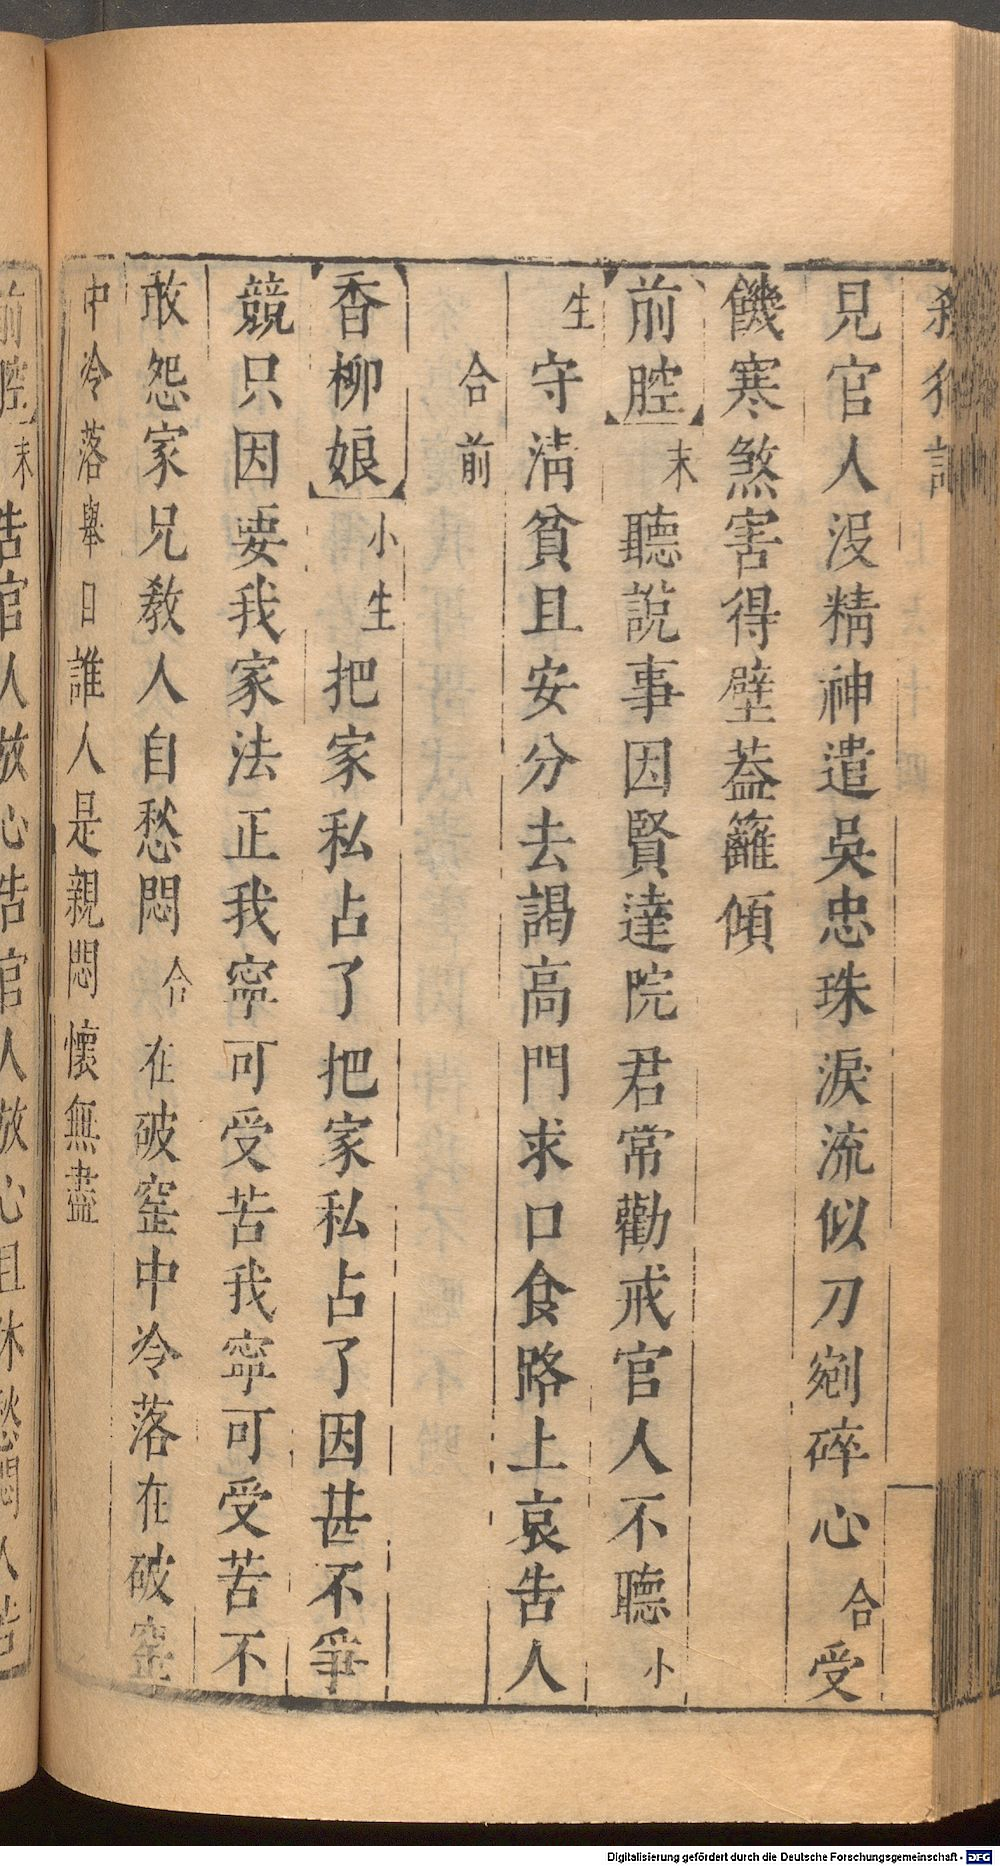 殺狗記
見官人没精神遣吳忠珠淚流似刀剜碎心合受
饑寒煞害得壁葢籬傾
前腔末聽說事因賢達院君常勸戒官人不聽小
生守淸貧且安分去謁高門求口食路上哀告人
合前
香柳娘小生把家私占了把家私占了因甚不爭
競只因要我家法正我寧可受苦我寧可受苦不
敢怨家兄教人自愁悶合在破窑中冷落在破窑
中冷落舉日誰人是親悶懷無盡
前腔末告官人放心告官人放心且休愁悶人
Digitalisierung gefördert durch die Deutsche Forschungsgemeinschaft - DFG